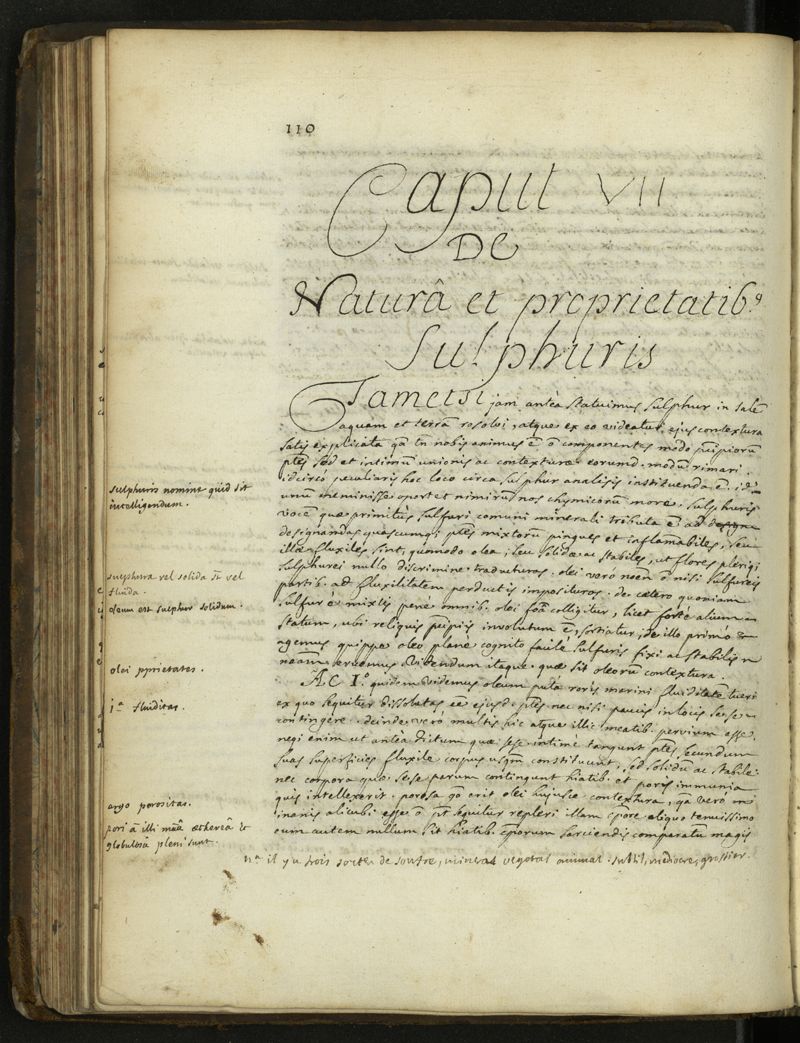 110
Caput VII
De
Naturâ et proprietatib9
Sulphuris
Tametsi jam antèa statuimus sulphur in sale
aquam et terrã resolvi, atque ex eo videatur ejus contextura
satis explicata qã tñ nobis animus ẽ õ componentes modo prĩpiorũ
ptẽs sed et intimũ unionis ac contexturæ eorumd. modũ rimari.
idcircò peculiaris hoc loco circa sulphur analisis instituenda ẽ. id
unũ meminisse oportet nimirũ nos chymicorũ more, sulphuris
vocẽ quæ primitùs sulfuri comuni minerali tributa ẽ ad
designandas quascumqȝ ptẽs mixtorũ pingues et inflamabiles, seu
illæ fluxiles sint, quomodo olea, seu solidæ ac stabiles, ut flores plẽriqȝ
sulphurei nullo discrimine traducturos. olei verò noẽn õ nisi sulfureis
partib. ad fluxilitatem perductis imposituros. de cætero quoniam
sulfur è mixtis penè omnib. olei forã colligitur, licet fortè alium
statum, ubi reliquis prĩpiis involutum ẽ, sortiatur, de illo primò
agemus quippe oleo planè cognito facilè sulfuris fixi ac stabilis
nãam eruemus videndum itaque quæ sit oleorũ contextura.
AC 1.º quidem videmus oleum puta roris marini fluiditatẽ tueri
ex quo sequitur dissolutas cẽ ejusd. ptẽs nec nisi paucis in locis sese
contingere. deinde verò multis hic atque illic meatib. pervium esse.
neqȝ enim ut antèa dictum quæ sese intimè tangunt ptẽs secundum
suas superficies fluxile corpus usqm̃ constituunt, sed solidũ ac stabile.
nec corpora quæ sese parum contingunt hiatib. et poris immunia
quis intellexerit. porosa gõ erit olei hujusce contextura, qã verò
inanis alicubi esse õ pt̃ sequitur repleri illam cpore aliquo tenuissimo
cum autem nullum sit hiatib. cporum sarciendis comparatũ magis
sulphuris nomine quid sit
intelligendum.
sulphura vel solida st̃ vel
fluida.
oleum est sulphur solidum.
olei pprietates.
1.ª fluiditas.
ergo porositas.
pori ã illi mãa æthereâ et
globulosâ pleni sunt.
nª il y a trois sortes de soufre, mineral vegetal animal. subtil, mediocre, grossier.